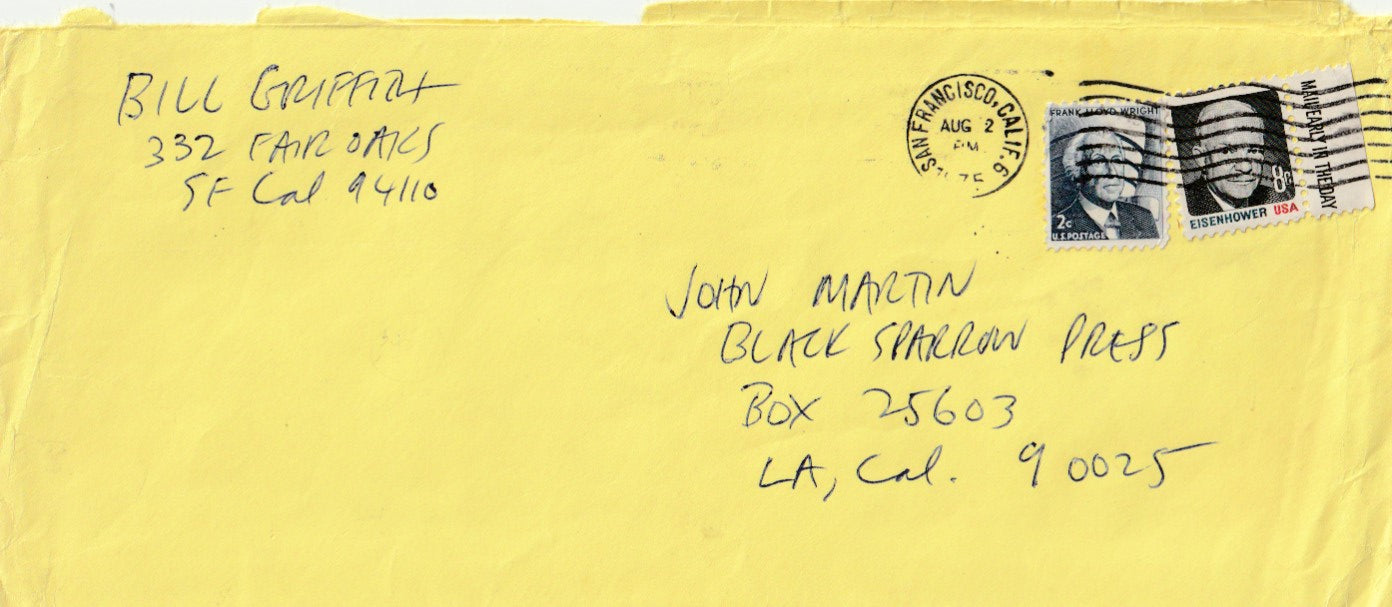 BILL GRIFFITH
332 FAIR OAKS
SF Cal 94110
SAN FRANCISCO, CALIF. 6
AUG 2
PM
FRANK LLOYD WRIGHT
2c
U.S. POSTAGE
8c
EISENHOWER USA
MAIL EARLY IN THE DAY
JOHN MARTIN
BLACK SPARROW PRESS
BOX 25603
LA, Cal. 90025